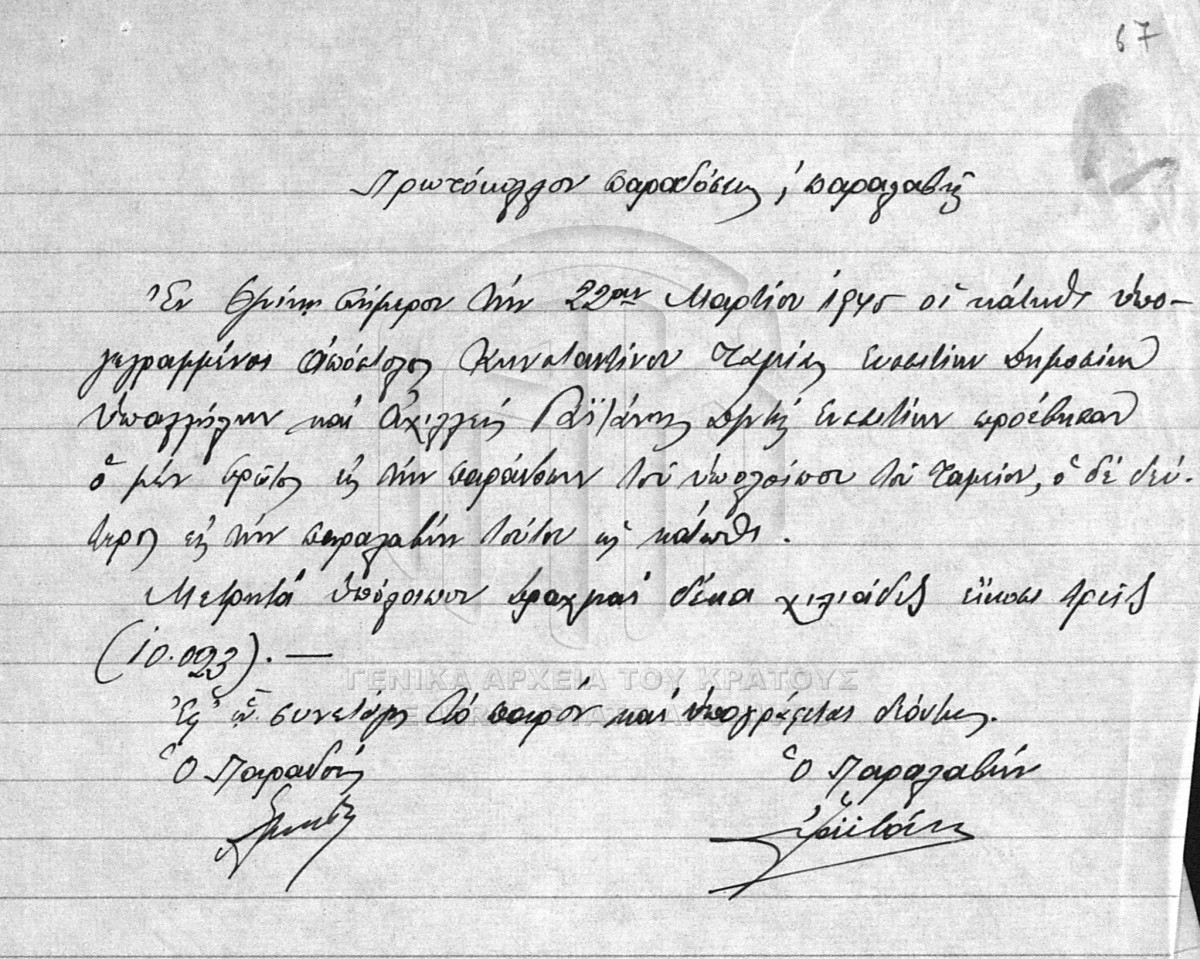 67
Πρωτόκολλον παραδόσεως & παραλαβῆς
Ἐν σήμερον τὴν 22αν Μαρτίου 1945 οἱ κάτωθι ὑπο-
γεγραμμένοι Ἀπόστολος Κωνσταντίνου Ταμίας Συσσιτίου Δημοσίων
Ὑπαλλήλων καὶ Ἀχιλλεὺς Ραϊτάνης Συσσιτίου προέβησαν
ὁ μὲν πρῶτος εἰς τὴν παράδοσιν τοῦ ὑπολοίπου τοῦ Ταμείου, ὁ δὲ δεύ-
τερος εἰς τὴν παραλαβὴν τούτου ὡς κάτωθι.
Μετρητὰ ὑπόλοιπον δραχμαὶ δέκα χιλιάδες εἴκοσι τρεῖς
(10.023). —
Ἐφ' ᾧ συνετάγη τὸ παρὸν καὶ ὑπογράφεται δεόντως.
Ὁ Παραδοὺς Ὁ Παραλαβών
ΓΕΝΙΚΑ ΑΡΧΕΙΑ ΤΟΥ ΚΡΑΤΟΥΣ